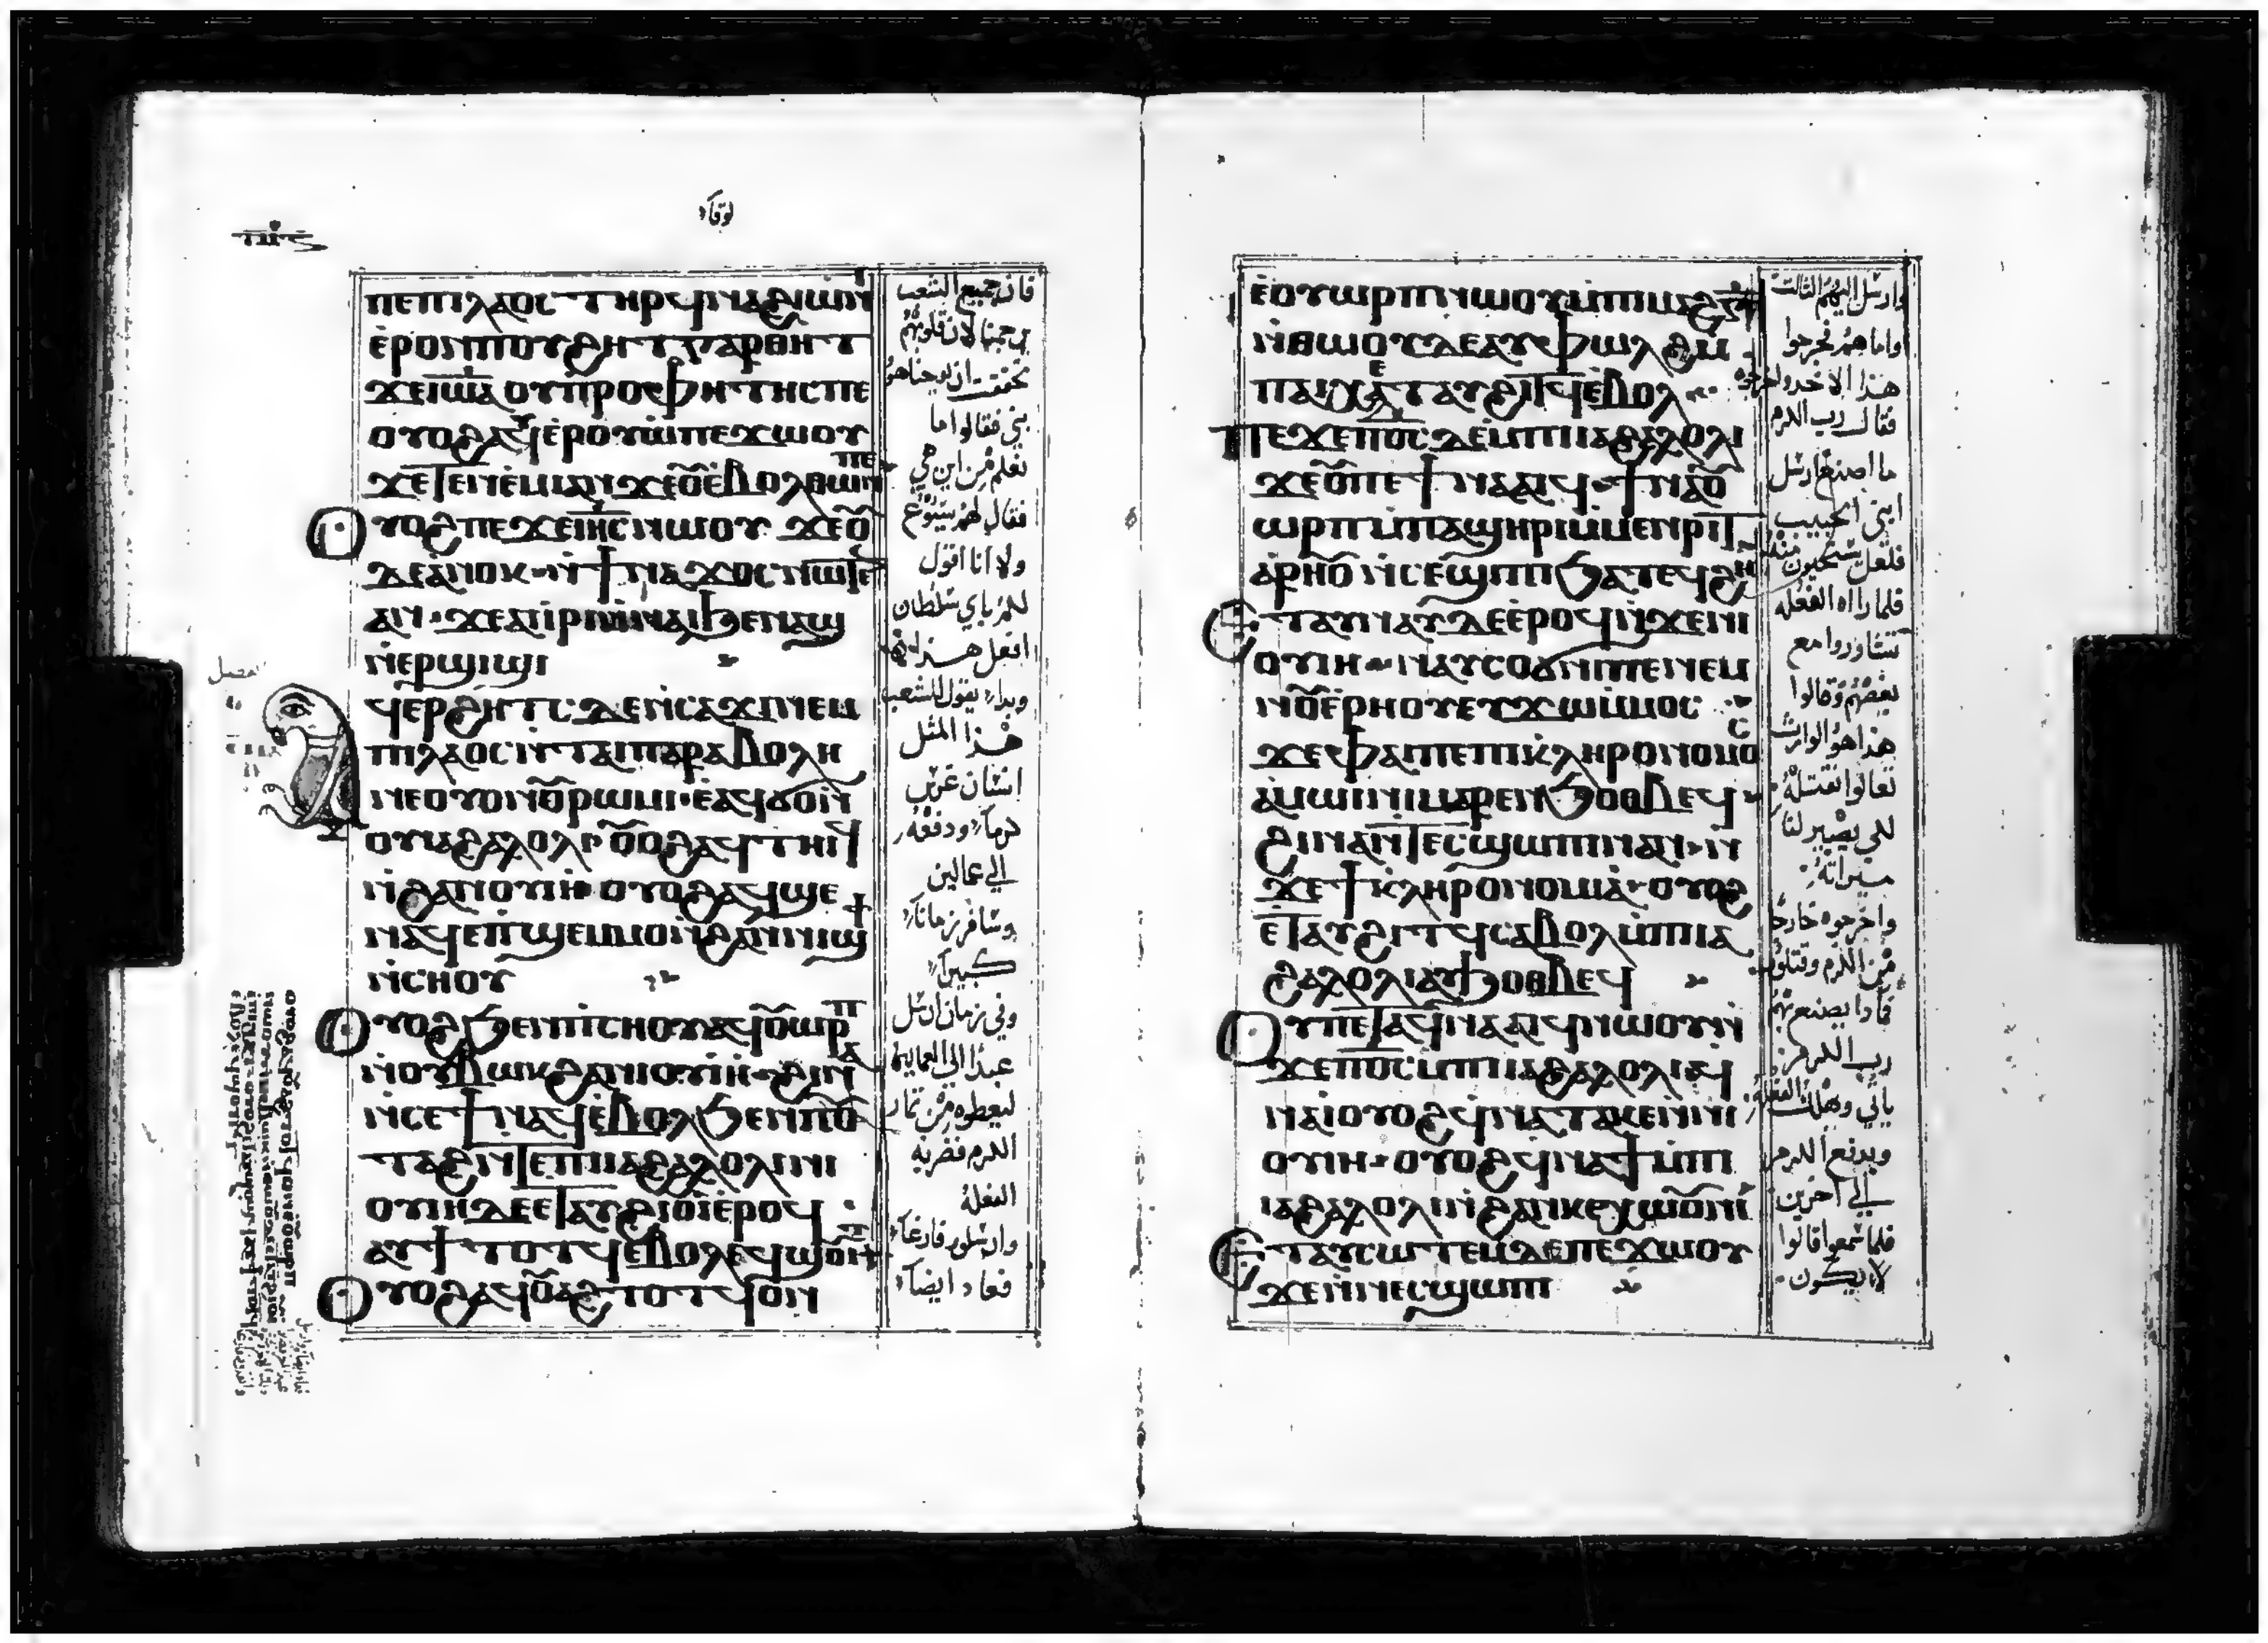 لوقا
ⲡⲉⲡⲓⲗⲁⲟⲥ ⲧⲏⲣϥ ⲛⲁϩⲓⲱⲛⲓ
ⲉⲣⲟⲛ ⲡⲟⲩϩⲏⲧ ⲅⲁⲣ ⲑⲏⲧ
ϫⲉ ⲓⲱⲁ ⲟⲩⲡⲣⲟⲫⲏⲧⲏⲥ ⲡⲉ
ⲟⲩⲟϩ ⲁⲩⲉⲣⲟⲩⲱ ⲡⲉϫⲱⲟⲩ
ϫⲉ ⲧⲉⲛⲉⲙⲓ ⲁⲛ ϫⲉ ⲟⲩⲉⲃⲟⲗ ⲑⲱⲛ ⲡⲉ
ⲟⲩⲟϩ ⲡⲉϫⲉ ⲓⲏⲥ ⲛⲱⲟⲩ ϫⲉ ⲟⲩ
ⲇⲉ ⲁⲛⲟⲕ ⲛϯⲛⲁϫⲟⲥ ⲛⲱⲧⲉⲛ
ⲁⲛ ϫⲉ ⲁⲓⲣⲓ ⲛⲛⲁⲓ ϧⲉⲛ ⲁϣ
ⲛⲉⲣϣⲓϣⲓ
ϥⲉⲣϩⲏⲧⲥ ⲇⲉ ⲛⲥⲁϫⲓ ⲛⲉⲙ
ⲡⲓⲗⲁⲟⲥ ⲛⲧⲁⲓⲡⲁⲣⲁⲃⲟⲗⲏ
ⲛⲉ ⲟⲩⲟⲛ ⲟⲩⲣⲱⲙⲓ ⲉⲁϥϭⲟ ⲛ
ⲟⲩⲓⲁϩⲁⲗⲟⲗⲓ ⲟⲩⲟϩ ⲁϥⲧⲏⲓϥ
ⲛϩⲁⲛⲟⲩⲓⲏ ⲟⲩⲟϩ ⲁϥϣⲉ
ⲛⲁϥ ⲉⲡϣⲉⲙⲙⲟ ⲛϩⲁⲛⲛⲓϣϯ
ⲛⲥⲏⲟⲩ
ⲟⲩⲟϩ ϧⲉⲛ ⲡⲓⲥⲏⲟⲩ ⲁϥⲟⲩⲱⲣⲡ
ⲛⲟⲩⲃⲱⲕ ϩⲁ ⲛⲓⲟⲩⲓⲏ ϩⲓⲛⲁ
ⲛⲥⲉϯ ⲛⲁϥ ⲉⲃⲟⲗ ϧⲉⲛ ⲡⲟⲩ
ⲧⲁϩ ⲛⲧⲉ ⲡⲓⲓⲁϩⲁⲗⲟⲗⲓ ⲛⲓ
ⲟⲩⲓⲏ ⲇⲉ ⲉⲧⲁⲩϩⲓⲟⲩⲓ ⲉⲣⲟϥ
ⲁⲩⲧ ⲧⲟⲧϥ ⲉⲃⲟⲗ ⲉϥϣⲟⲩⲓⲧ
ⲟⲩⲟϩ ⲁϥⲟⲩⲁϩⲧⲟⲧϥ ⲟⲛ
فان جميع الشعب
يرجمنا لان قلوبهم
تحققت ان يوحنا هو
نبي فقالوا ما
نعلم من اين هي
فقال لهم يسوع
ولا انا اقول
لكم باي سلطان
افعل هذا
وبدا يقول للشعب
هذا المثل
انسان غرس
كرما ودفعه
الي عمالين
وسافر زمانا
كبيرا
وفي زمان ارسل
عبدا الى العمالين
ليعطوه من ثمار
الكرم فضربه
الفعلة
وارسلوه فارغا
فعاد ايضا
ⲉⲟⲩⲱⲣⲡ ⲛⲱⲟⲩ ⲙⲡⲓⲙⲁϩⲅ
ⲛⲑⲱⲟⲩ ⲇⲉ ⲁⲩⲫⲱⲗϩ ⲙ
ⲡⲁⲓⲭⲉⲧ ⲁⲩϩⲓⲧϥ ⲉⲃⲟⲗ
ⲡⲉϫⲉ ⲡⲟⲥ ⲇⲉ ⲙⲡⲓⲓⲁϩⲁⲗⲟⲗⲓ
ϫⲉ ⲟⲩ ⲡⲉϯⲛⲁⲁⲓϥ ϯⲛⲁⲟⲩ
ⲱⲣⲡ ⲙⲡⲁϣⲏⲣⲓ ⲙⲙⲉⲛⲣⲓⲧ
ⲁⲣⲏⲟⲩ ⲛⲥⲉϣⲓⲡⲓ ϧⲁⲧⲉϥϩⲏ
ⲉⲧⲁⲩⲛⲁⲩ ⲇⲉ ⲉⲣⲟϥ ⲛϫⲉ ⲛⲓ
ⲟⲩⲓⲏ ⲛⲁⲩⲥⲟϭⲛⲓ ⲡⲉ ⲛⲉⲙ
ⲛⲟⲩⲉⲣⲏⲟⲩ ⲉⲩϫⲱ ⲙⲙⲟⲥ
ϫⲉ ⲫⲁⲓ ⲡⲉ ⲡⲓⲕⲗⲏⲣⲟⲛⲟⲙⲟⲥ
ⲁⲙⲱⲓⲛⲓ ⲙⲁⲣⲉⲛϧⲟⲑⲃⲉϥ
ϩⲓⲛⲁ ⲛⲧⲉⲥϣⲱⲡⲓ ⲛⲁⲛ ⲛ
ϫⲉ ϯⲕⲗⲏⲣⲟⲛⲟⲙⲓⲁ ⲟⲩⲟϩ
ⲉⲧⲁⲩϩⲓⲧϥ ⲥⲁⲃⲟⲗ ⲙⲡⲓⲓⲁ
ϩⲁⲗⲟⲗⲓ ⲁⲩϧⲟⲑⲃⲉϥ
ⲟⲩ ⲡⲉⲧⲁϥⲛⲁⲁⲓϥ ⲛⲱⲟⲩ ⲛ
ϫⲉ ⲡⲟⲥ ⲙⲡⲓⲓⲁϩⲁⲗⲟⲗⲓ ϥ
ⲛⲁⲓ ⲟⲩⲟϩ ϥⲛⲁⲧⲁⲕⲉ ⲛⲓ
ⲟⲩⲓⲏ ⲟⲩⲟϩ ϥⲛⲁϯ ⲙⲡⲓ
ⲓⲁϩⲁⲗⲟⲗⲓ ⲛϩⲁⲛⲕⲉⲭⲱⲟⲩⲛⲓ
ⲉⲧⲁⲩⲥⲱⲧⲉⲙ ⲇⲉ ⲡⲉϫⲱⲟⲩ
ϫⲉ ⲛⲛⲉⲥϣⲱⲡⲓ
وارسل اليهم الثالث
واما هم فجرحوا
هذا الاخر واخرجوه
فقال رب الكرم
ما اصنع ارسل
ابني الحبيب
فلعل يستحيون منه
فلما راه الفعله
تشاوروا مع
بعضهم وقالوا
هذا هو الوارث
تعالوا نقتله
لكي يصير لنا
ميراثه
واخرجوه خارج
من الكرم وقتلوه
فماذا يصنع بهم
رب الكرم
ياتي ويهلك الفعله
ويدفع الكرم
الي اخرين
فلما سمعوا قالوا
لا يكون